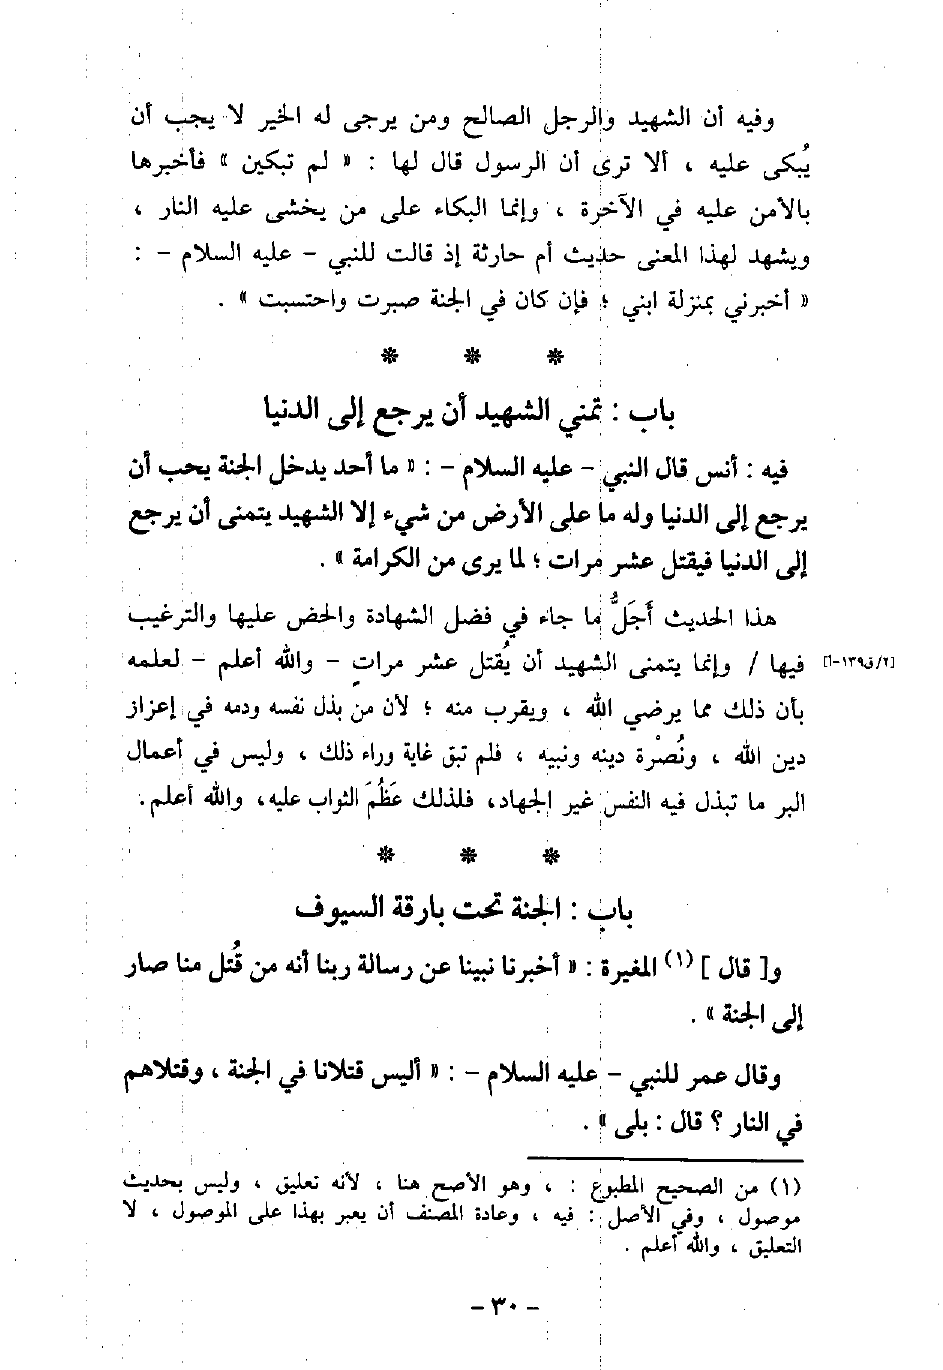 وفيه أن الشهيد والرجل الصالح ومن يرجى له الخير لا يجب أن
يُبكى عليه ، ألا ترى أن الرسول قال لها : « لم تبكين » فأخبرها
بالأمن عليه في الآخرة ، وإنما البكاء على من يخشى عليه النار ،
ويشهد لهذا المعنى حديث أم حارثة إذ قالت للنبي – عليه السلام – :
« أخبرني بمنزلة ابني ؛ فإن كان في الجنة صبرت واحتسبت » .
* * *
باب : تمني الشهيد أن يرجع إلى الدنيا
فيه : أنس قال النبي – عليه السلام – : « ما أحد يدخل الجنة يحب أن
يرجع إلى الدنيا وله ما على الأرض من شيء إلا الشهيد يتمنى أن يرجع
إلى الدنيا فيقتل عشر مرات ؛ لما يرى من الكرامة » .
هذا الحديث أَجَلُّ ما جاء في فضل الشهادة والحض عليها والترغيب
فيها / وإنما يتمنى الشهيد أن يُقتل عشر مراتٍ – والله أعلم – لعلمه [٢/ق١٣٩-أ]
بأن ذلك مما يرضي الله ، ويقرب منه ؛ لأن من بذل نفسه ودمه في إعزاز
دين الله ، ونُصْرة دينه ونبيه ، فلم تبق غاية وراء ذلك ، وليس في أعمال
البر ما تبذل فيه النفس غير الجهاد، فلذلك عَظُمَ الثواب عليه، والله أعلم.
* * *
باب : الجنة تحت بارقة السيوف
و[ قال ] (١) المغيرة : « أخبرنا نبينا عن رسالة ربنا أنه من قُتل منا صار
إلى الجنة » .
وقال عمر للنبي – عليه السلام – : « أليس قتلانا في الجنة ، وقتلاهم
في النار ؟ قال : بلى » .
(١) من الصحيح المطبوع : ، وهو الأصح هنا ، لأنه تعليق ، وليس بحديث
موصول ، وفي الأصل : فيه ، وعادة المصنف أن يعبر بهذا على الموصول ، لا
التعليق ، والله أعلم .
– ٣٠ –